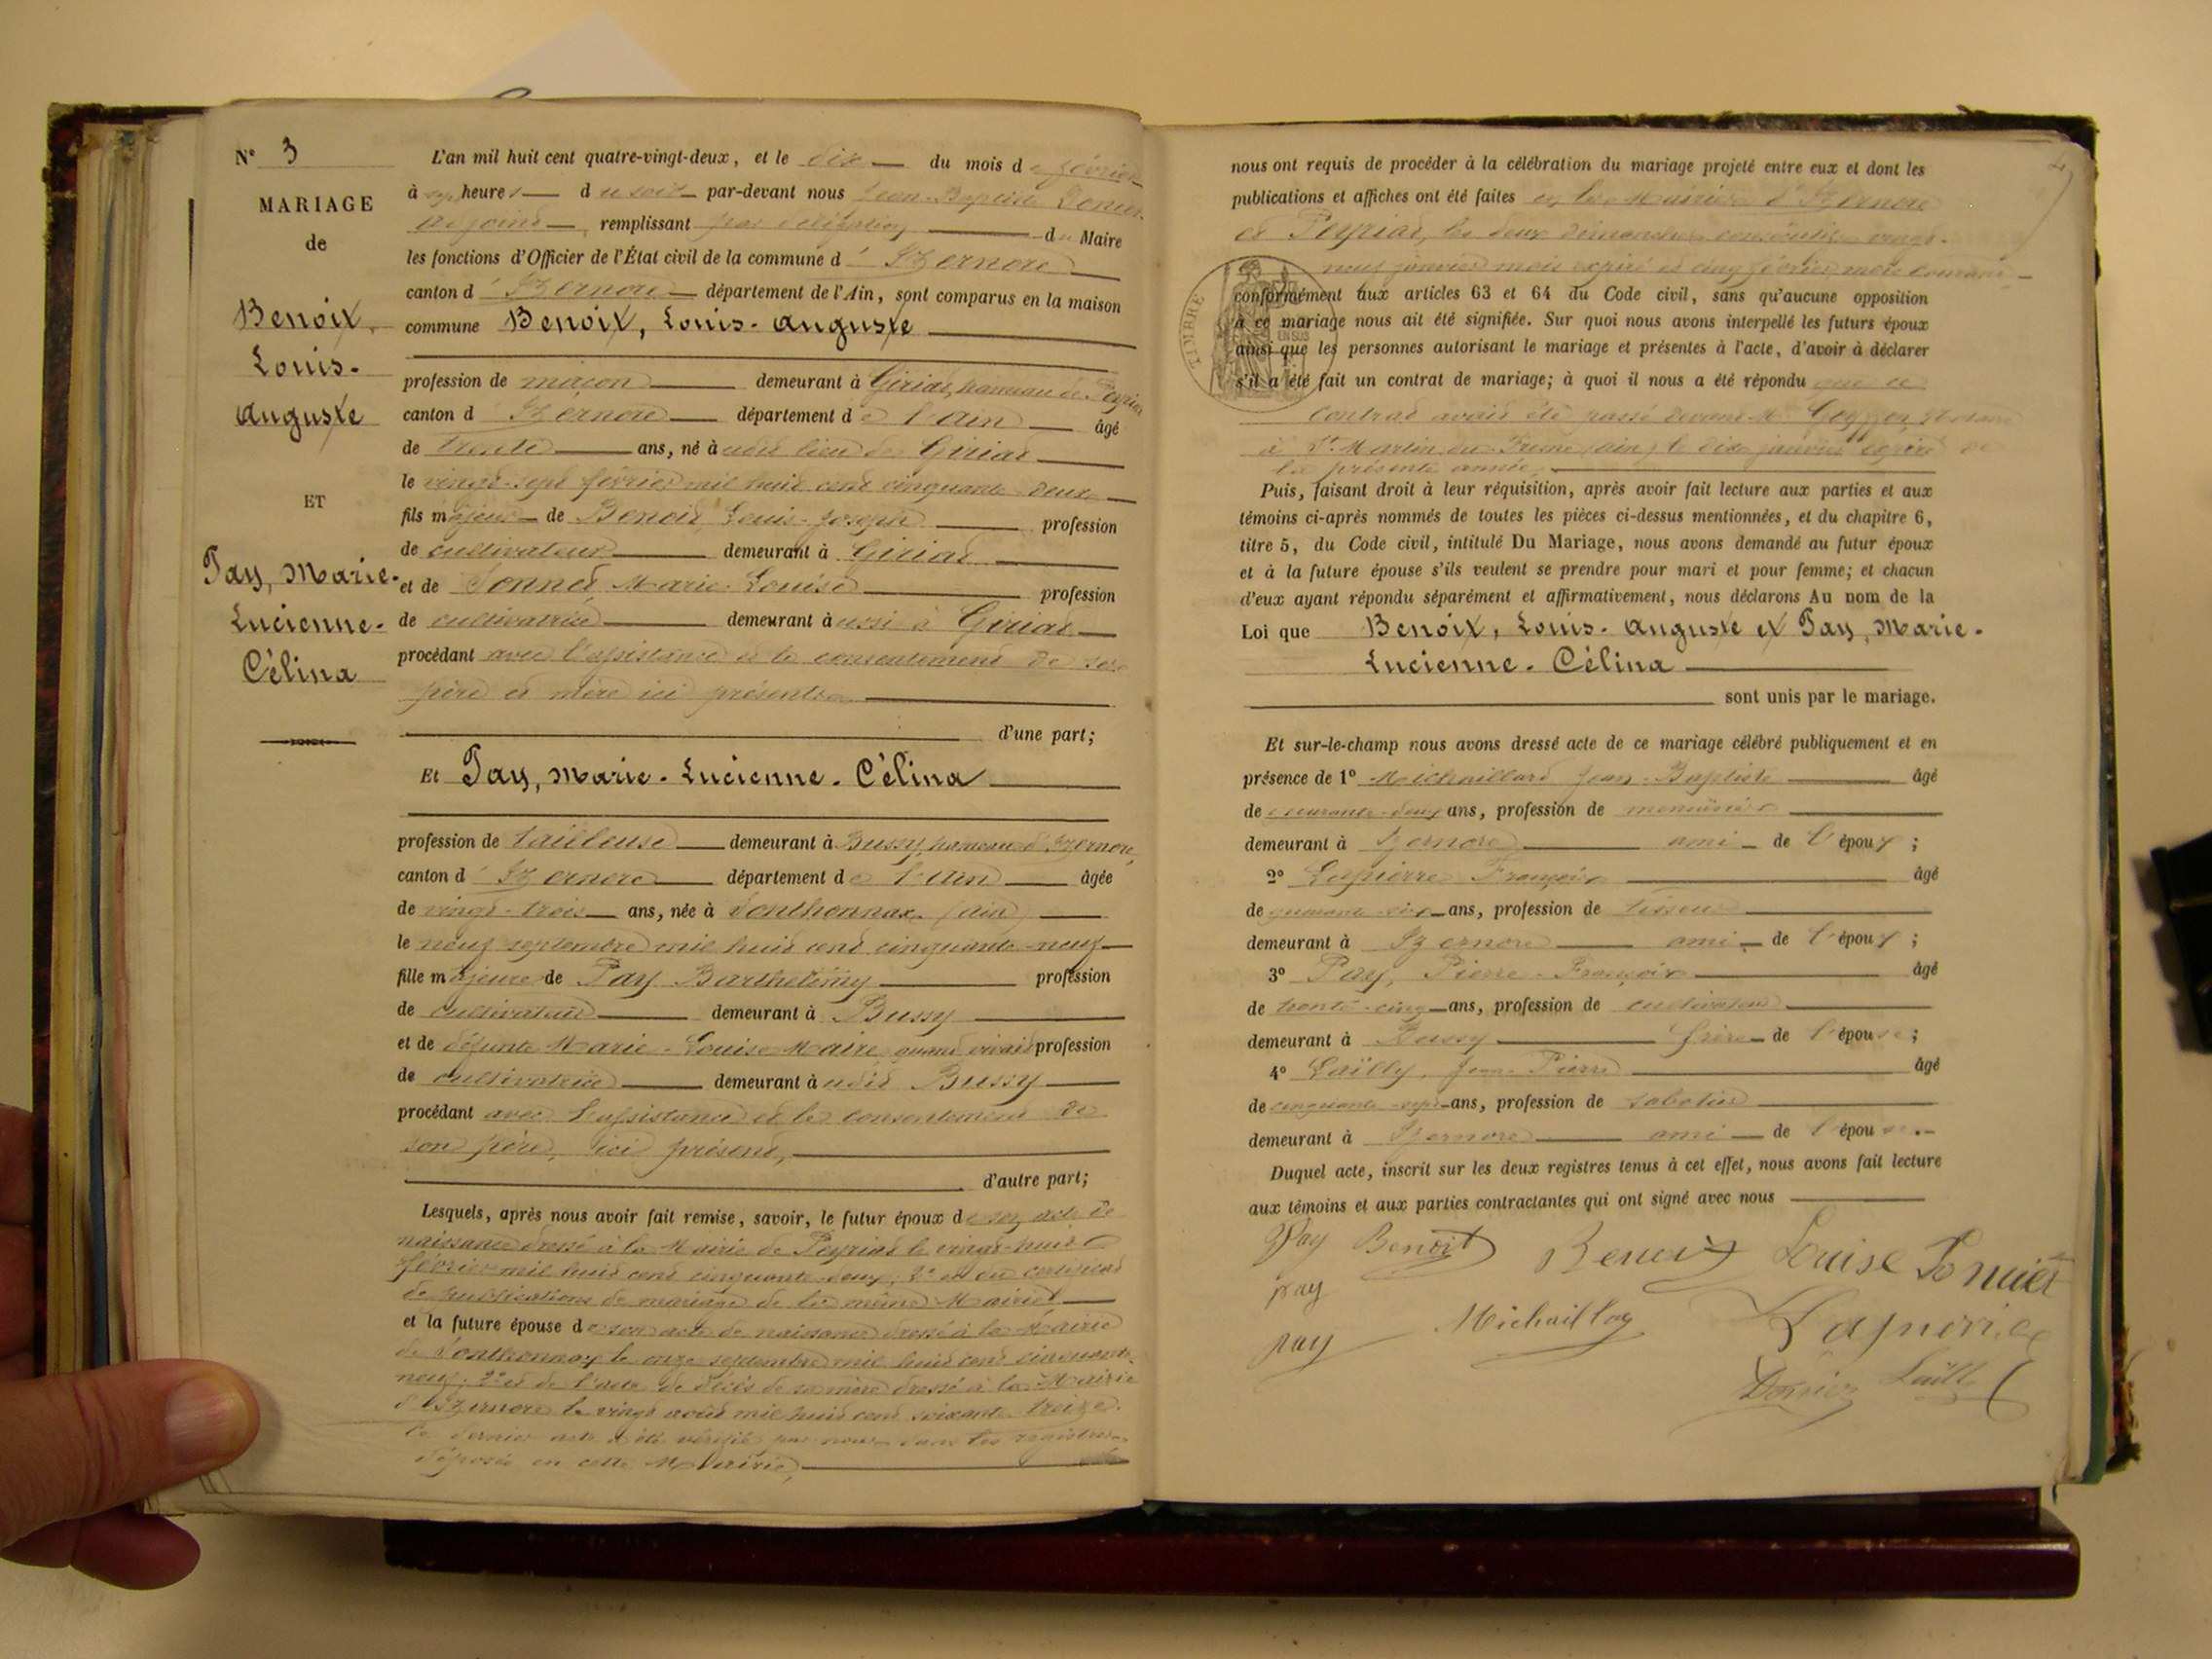 N° 3
MARIAGE
de
Benoit,
Louis-
Auguste
ET
Pay, Marie-
Lucienne-
Célina
L'an mil huit cent quatre-vingt-deux, et le dix du mois de février
à sept heures du soir par-devant nous Jean-Baptiste
adjoint, remplissant par délégation du Maire
les fonctions d'Officier de l'État civil de la commune d'Izernore
canton d'Izernore département de l'Ain, sont comparus en la maison
commune Benoit, Louis-Auguste
profession de maçon demeurant à Giriat, hameau de Peyriat
canton d'Izernore département de l'Ain âgé
de trente ans, né audit lieu de Giriat
le vingt-sept février mil huit cent cinquante deux
fils majeur de Benoit Louis-Joseph profession
de cultivateur demeurant à Giriat
et de Marie-Louise profession
de cultivatrice demeurant aussi à Giriat
procédant avec l'assistance et le consentement de ses
père et mère ici présents
d'une part;
Et Pay, Marie-Lucienne-Célina
profession de tailleuse demeurant à Bussy, hameau d'Izernore,
canton d'Izernore département de l'Ain âgée
de vingt-trois ans, née à Sonthonnax (Ain)
le neuf septembre mil huit cent cinquante-neuf
fille majeure de Pay Barthélemy profession
de cultivateur demeurant à Bussy
et de défunte Marie-Louise Maire quand vivait profession
de cultivatrice demeurant audit Bussy
procédant avec l'assistance et le consentement de
son père, ici présent,
d'autre part;
Lesquels, après nous avoir fait remise, savoir, le futur époux de son acte de
naissance dressé à la Mairie de Peyriat le vingt-huit
février mil huit cent cinquante deux; 2° et du certificat
de publications de mariage de la même Mairie
et la future épouse de son acte de naissance dressé à la Mairie
de Sonthonnax le onze septembre mil huit cent cinquante-
neuf; 2° et de l'acte de décès de sa mère dressé à la Mairie
d'Izernore le vingt août mil huit cent soixante treize.
Ce dernier acte a été vérifié par nous dans les registres
déposés en cette Mairie,
nous ont requis de procéder à la célébration du mariage projeté entre eux et dont les
publications et affiches ont été faites en les Mairies d'Izernore
et Peyriat, les deux dimanches consécutifs vingt-
neuf janvier mois expiré et cinq février mois courant
TIMBRE
EN SUS
conformément aux articles 63 et 64 du Code civil, sans qu'aucune opposition
à ce mariage nous ait été signifiée. Sur quoi nous avons interpellé les futurs époux
ainsi que les personnes autorisant le mariage et présentes à l'acte, d'avoir à déclarer
s'il a été fait un contrat de mariage; à quoi il nous a été répondu que ce
contrat avait été passé devant Me notaire
à St Martin du Frêne (Ain) le dix janvier expiré de
la présente année,
Puis, faisant droit à leur réquisition, après avoir fait lecture aux parties et aux
témoins ci-après nommés de toutes les pièces ci-dessus mentionnées, et du chapitre 6,
titre 5, du Code civil, intitulé Du Mariage, nous avons demandé au futur époux
et à la future épouse s'ils veulent se prendre pour mari et pour femme; et chacun
d'eux ayant répondu séparément et affirmativement, nous déclarons Au nom de la
Loi que Benoit, Louis-Auguste et Pay, Marie-
Lucienne-Célina
sont unis par le mariage.
Et sur-le-champ nous avons dressé acte de ce mariage célébré publiquement et en
présence de 1° Michaillard Jean-Baptiste âgé
de quarante-deux ans, profession de menuisier
demeurant à Izernore ami de l'époux;
2° Lapierre François âgé
de ans, profession de tisseur
demeurant à Izernore ami de l'époux;
3° Pay, Pierre-François âgé
de trente-cinq ans, profession de cultivateur
demeurant à Bussy frère de l'épouse;
4° Lailly, Jean-Pierre âgé
de cinquante-sept ans, profession de sabotier
demeurant à Izernore ami de l'épouse.
Duquel acte, inscrit sur les deux registres tenus à cet effet, nous avons fait lecture
aux témoins et aux parties contractantes qui ont signé avec nous
Pay Benoit Benoit Louise
pay
pay Michaillard Lapierre